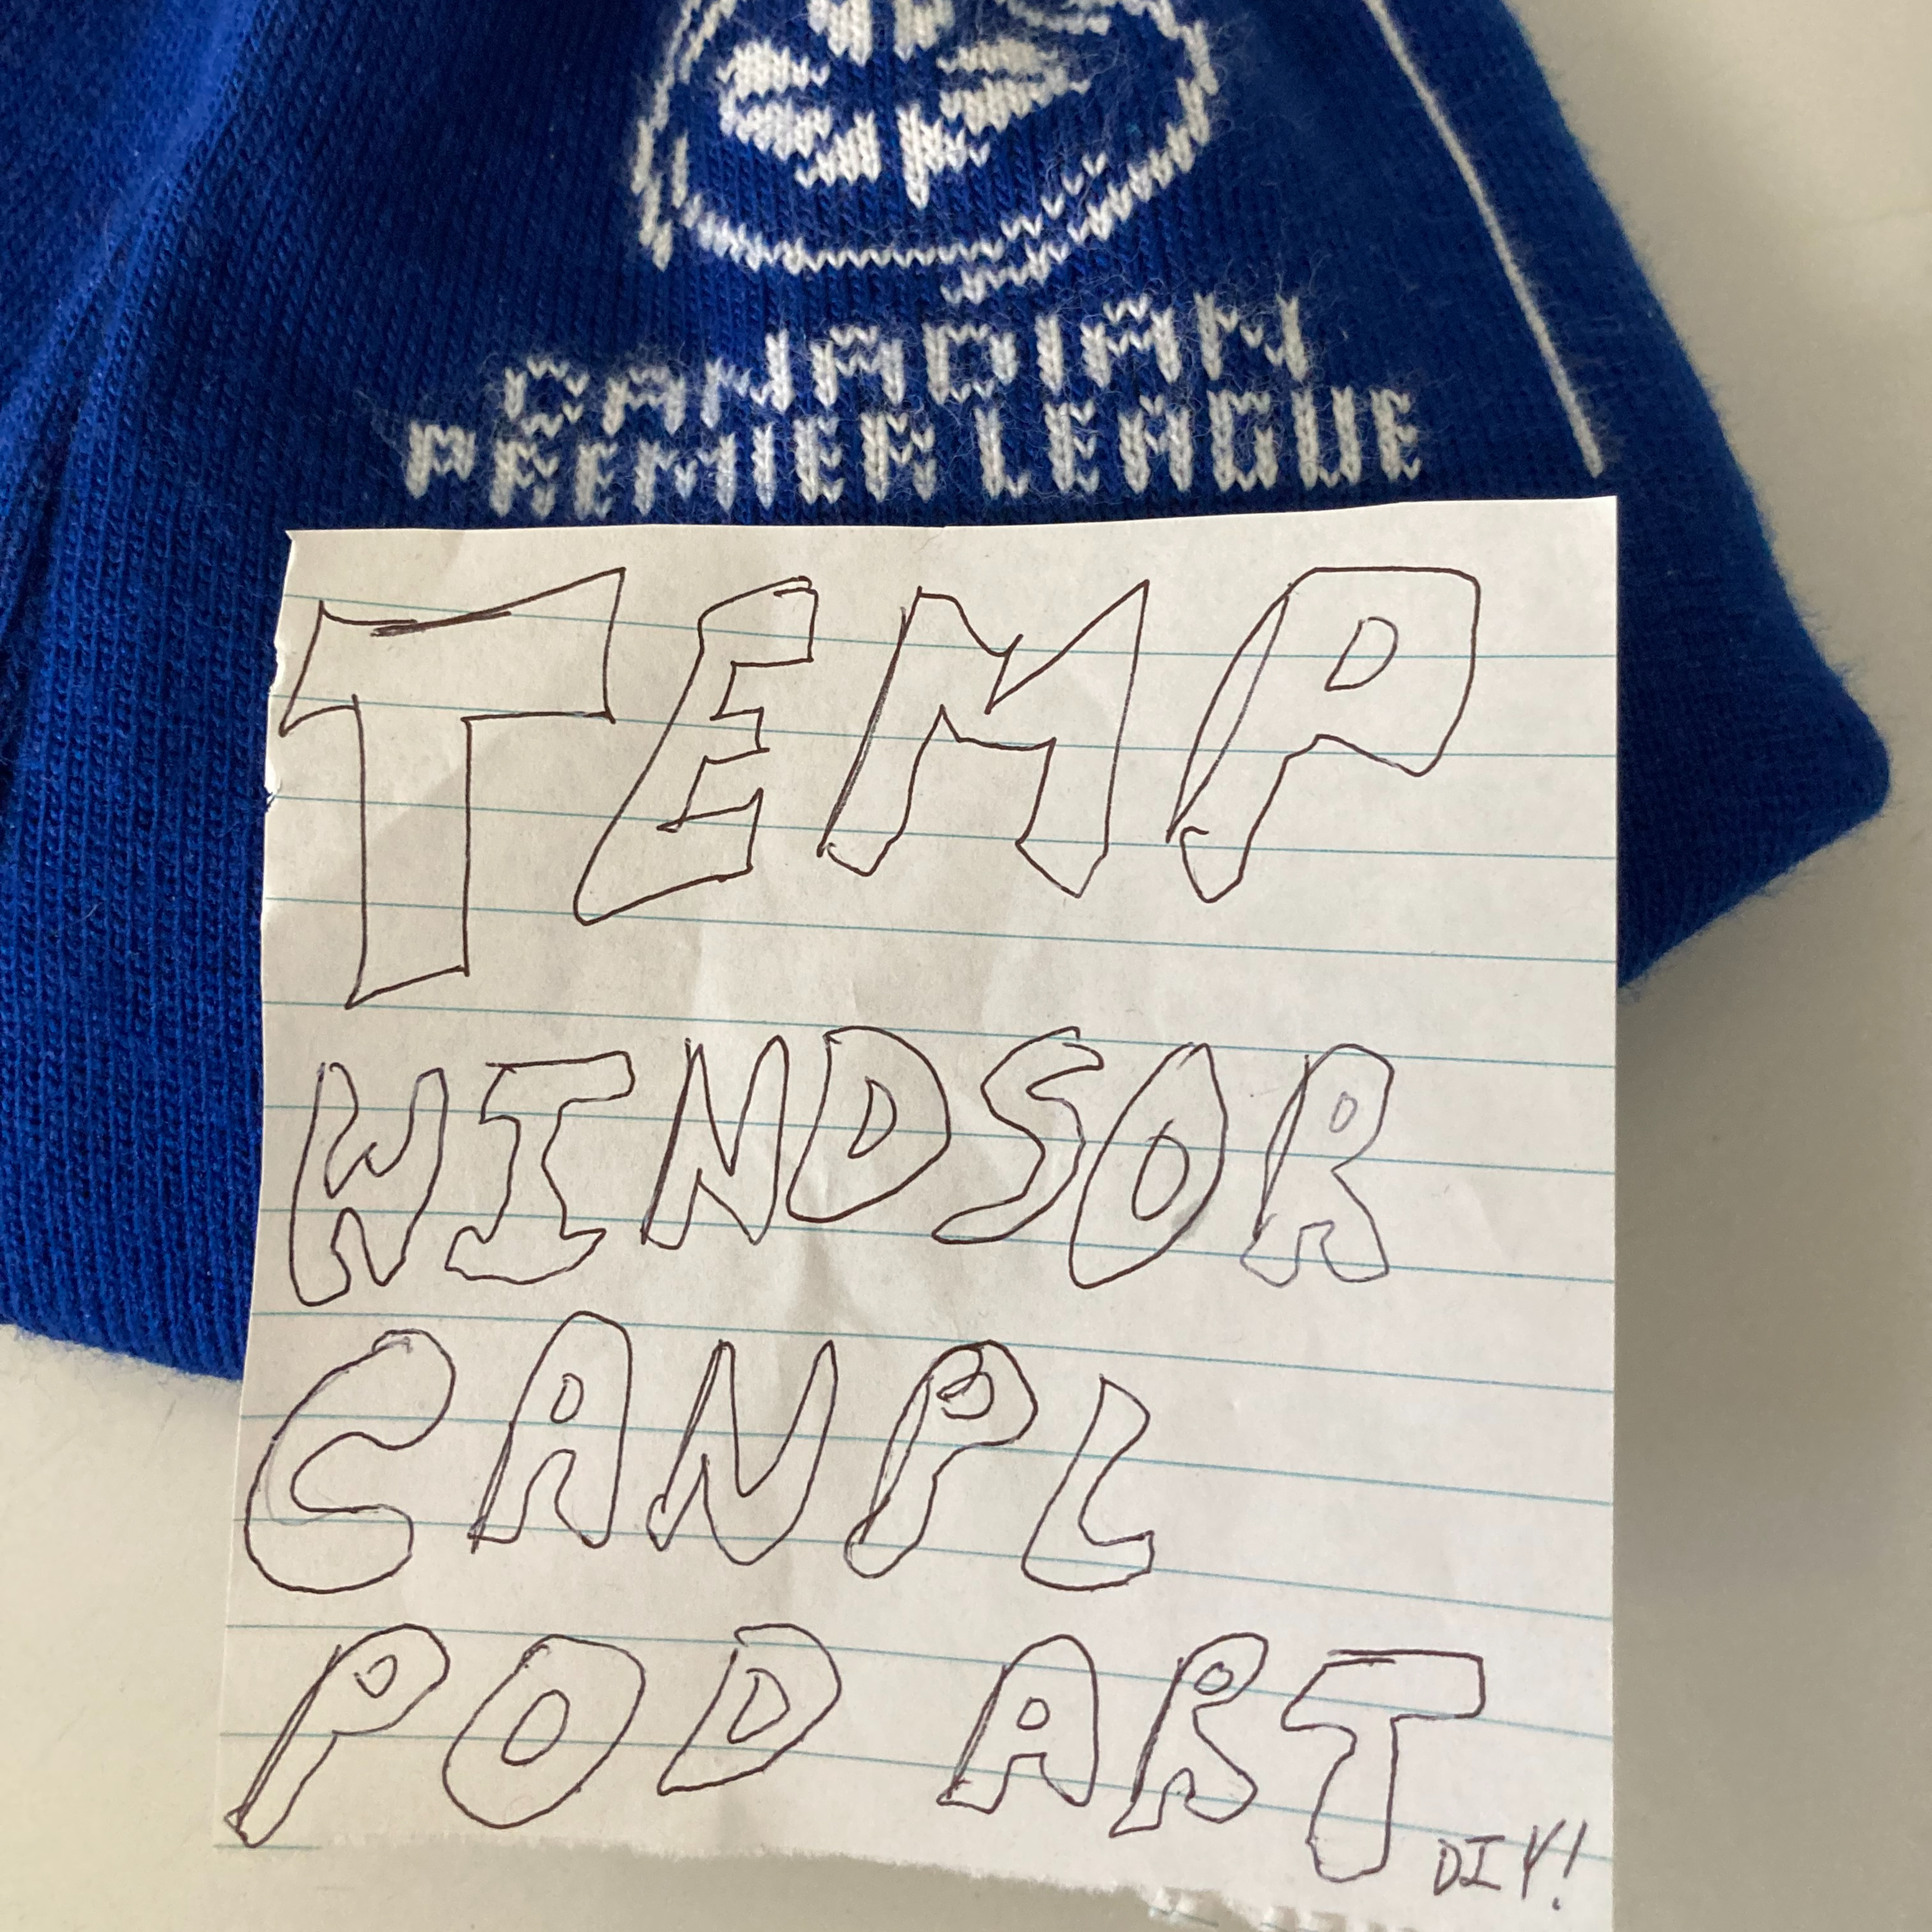 CANADIAN
PREMIER LEAGUE
TEMP
WINDSOR
CANPL
POD ART
DIY!